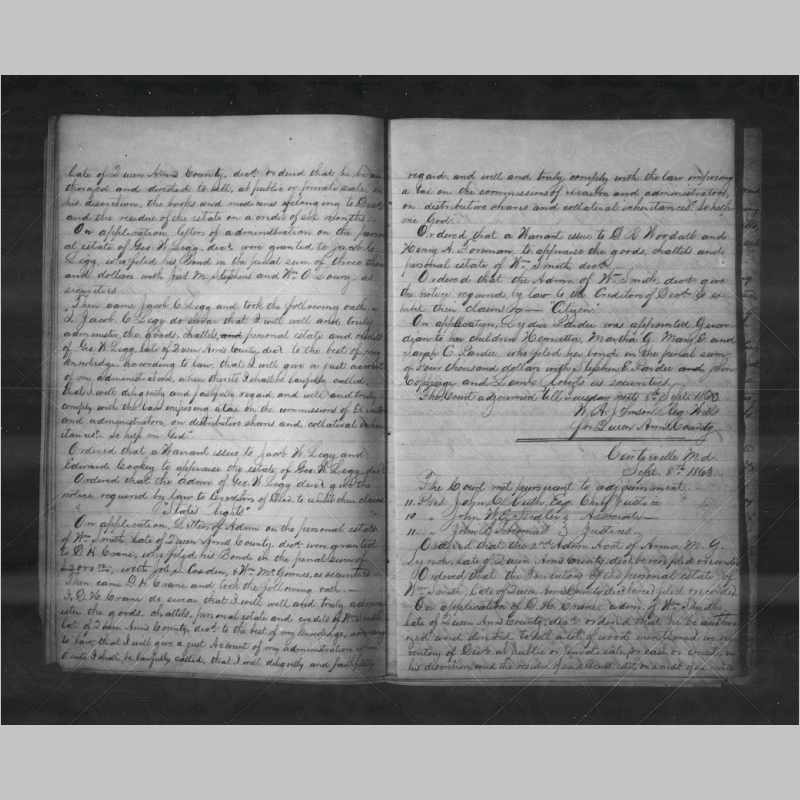 late of Queen Anns County, decd. ordered that he be au
thorized and directed to sell, at public or private sale, in
his discretion, the books and medicines belonging to Decd
and the residue of the estate on a credit of six months.
On application letters of administration on the person
al estate of Geo. W. Legg, decd. were granted to Jacob C.
Legg, who filed his Bond in the penal sum of three thous
and dollars with M. Stephens and Wm. as
securities
Then came Jacob C Legg and took the following oath.
I. Jacob C Legg do swear that I will well and truly
administer the goods, chattels and personal estate and credits
of Geo. W. Legg, late of Queen Anns County, decd. to the best of my
knowledge, according to law, that I will give a just account
of my administration, when thereto I shall be lawfully called,
that I will diligently and faithfully regard and well and truly
comply with the law imposing a tax on the commissions of Executors
and administrators, on distributive shares and collateral inher
itances. So help me God.
Ordered that a Warrant issue to Jacob W. Legg and
Edward to appraise the estate of Geo. W. Legg, decd
Ordered that the Admr of Geo. W. Legg decd. give the
notice required by law to Creditors of Decd. to exhibit their claims
"States Rights"
On application, Letters of Admn on the personal estate
of Wm. Smith, late of Queen Anns County, decd. were granted
to D. H. Crane, who filed his Bond in the penal sum of
with John Casden, & Wm. McGinnes, as securities
Then came D. H. Crane and took the following oath.
I, D. H. Crane do swear that I will well and truly admin
ister the goods, chattels, personal estate and credits of Wm. Smith
late of Queen Anns County, decd. to the best of my knowledge, according
to law, that I will give a just account of my administration when
thereto I shall be lawfully called, that I will diligently and faithfully
regard and well and truly comply with the law imposing
a tax on the commissions of executors and administrators,
on distributive shares and collateral inheritances. So help
me God.
Ordered that a Warrant issue to D. C. Woodall and
Henry A. Foreman to appraise the goods, chattels and
personal estate of Wm. Smith, decd.
Ordered that the Admr of Wm. Smith, decd. give
the notice required by law to the Creditors of Decd. to ex
hibit their claims by "Citizen"
On application, Lydia Pardee was appointed Guar
dian to her children Henrietta, Martha G. Mary E. and
Sarah C. Pardee who filed her bond in the penal sum
of Four thousand dollars with Stephen E. and
and Roberts as securities.
The Court adjourned till Tuesday next 8th Sept 1863
W. A. Johnson Reg. Wills
for Queen Anns County
Centreville Md.
Sept. 8th 1863.
The Court met pursuant to adjournment.
11. Prest John C. Ruth, Esq Chief Justice
10 " John W. E. Sudler } Associate
11 " John B. } Justices
Ordered that the 2nd Admn Acct. of Anna M. G.
late of Queen Anns County, decd. be recd filed recorded
Ordered that the Inventory of the personal estate of
Wm. Smith, late of Queen Anns County, decd. be recd filed recorded
On application of D. H. Crane, admr. of Wm. Smith
late of Queen Anns County, decd. ordered that he be author
ized and directed to sell a lot of wood mentioned in in
ventory of Decd. at public or private sale, for cash or credit, in
his discretion and the residue of said